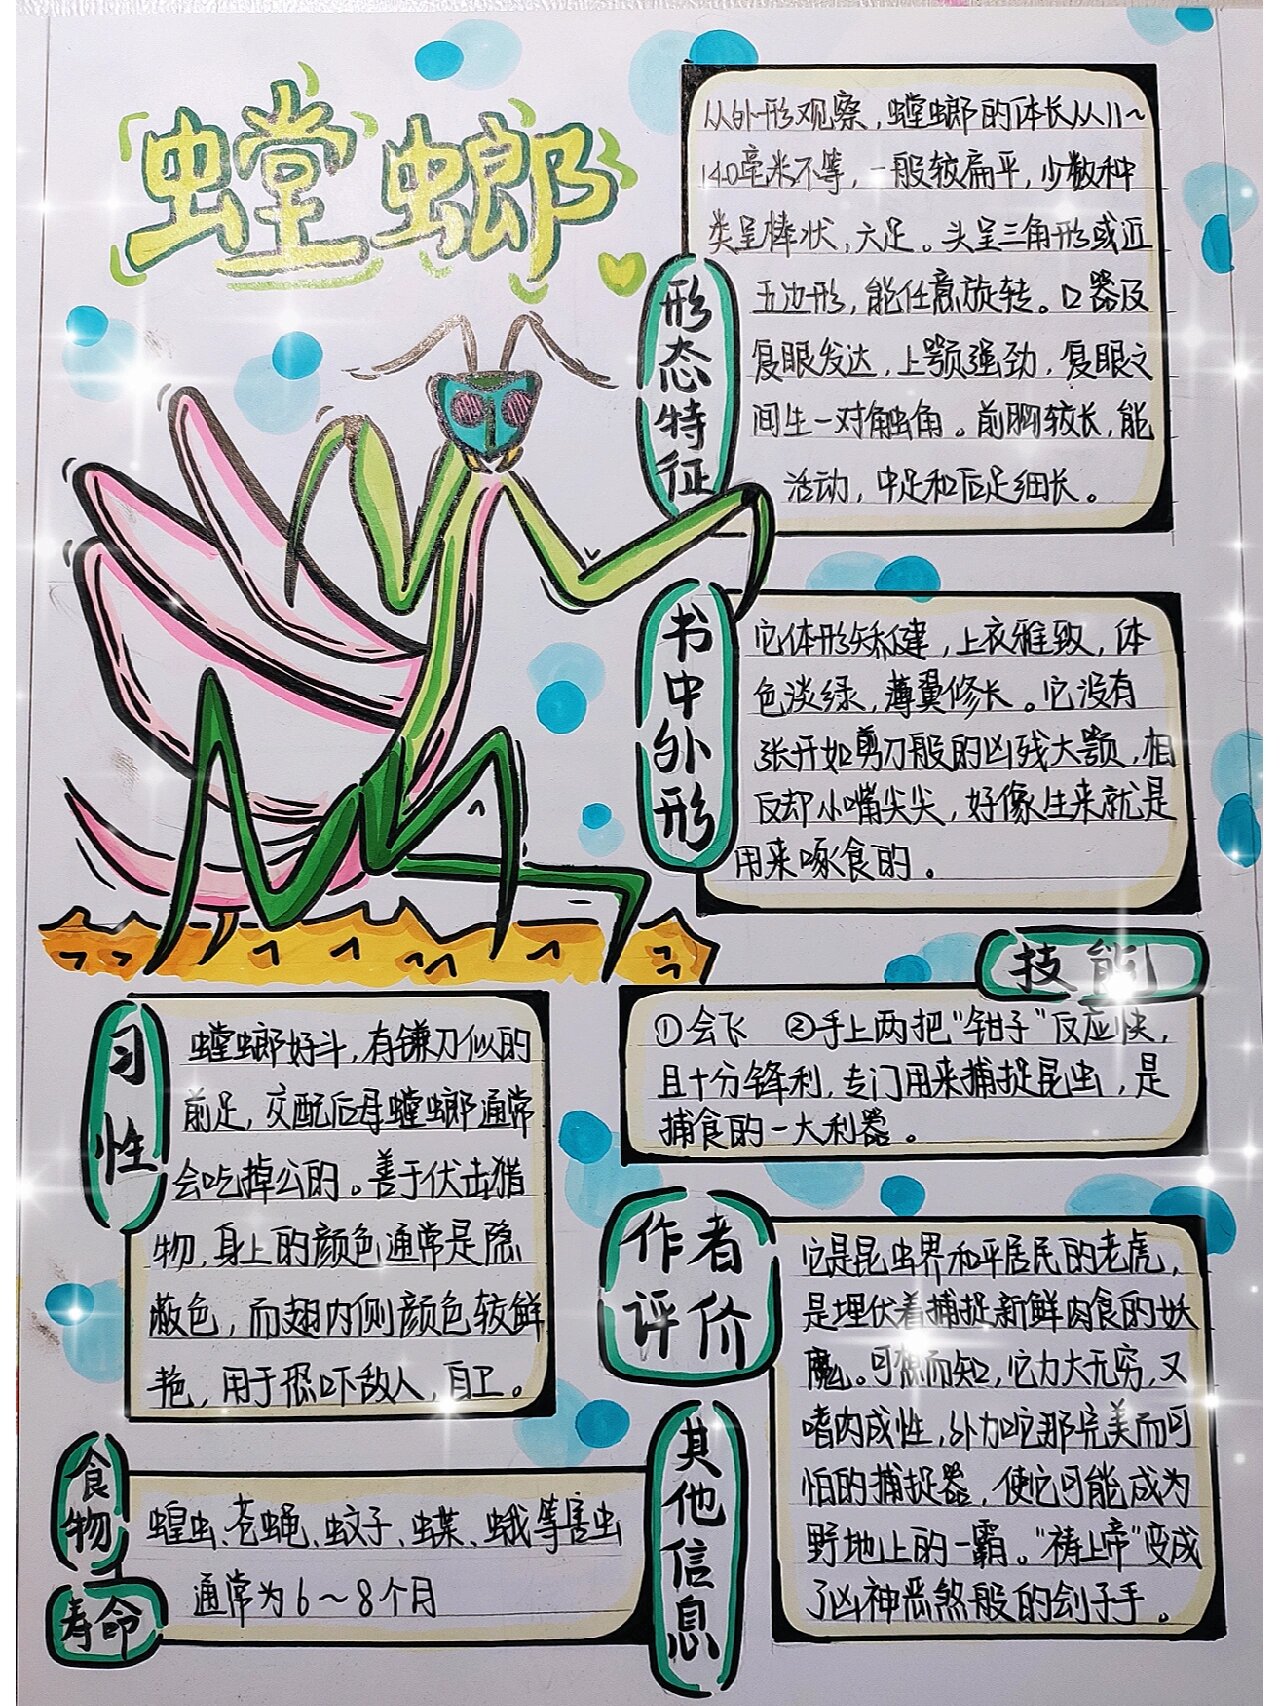 螳螂
形态特征
从外形观察，螳螂的体长从11～
140毫米不等，一般较扁平，少数种
类呈棒状，六足。头呈三角形或近
五边形，能任意旋转。口器及
复眼发达，上颚强劲，复眼之
间生一对触角。前胸较长，能
活动，中足和后足细长。
书中外形
它体形矫健，上衣雅致，体
色淡绿，薄翼修长。它没有
张开如剪刀般的凶残大颚，相
反却小嘴尖尖，好像生来就是
用来啄食的。
技能
①会飞 ②手上两把“钳子”反应快，
且十分锋利，专门用来捕捉昆虫，是
捕食的一大利器。
习性
螳螂好斗，有镰刀似的
前足，交配后母螳螂通常
会吃掉公的。善于伏击猎
物，身上的颜色通常是隐
蔽色，而翅内侧颜色较鲜
艳，用于恐吓敌人，自卫。
作者
评价
它是昆虫界和平居民的老虎，
是埋伏着捕捉新鲜肉食的妖
魔。可想而知，它力大无穷，又
嗜肉成性，外加它那完美而可
怕的捕捉器，使它可能成为
野地上的一霸。“祷上帝”变成
了凶神恶煞般的刽子手。
其他信息
食物
蝗虫、苍蝇、蚊子、蝶、蛾等害虫
寿命
通常为6～8个月